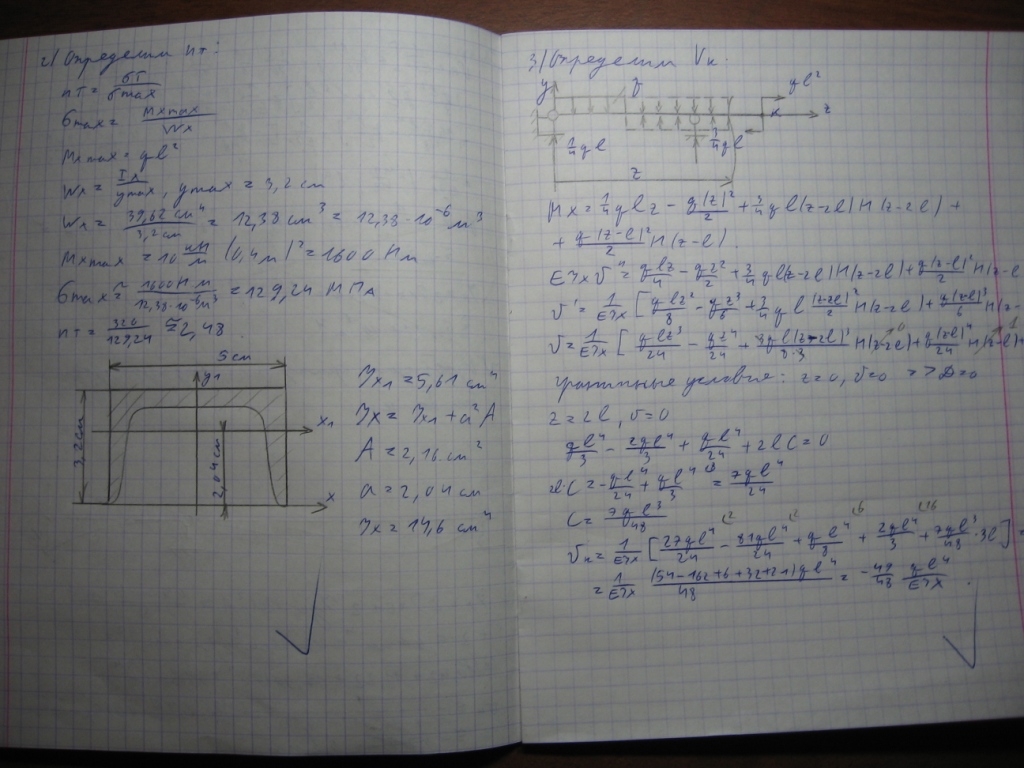 2) Определим nт:
nт = σт/σmax
σmax = Mxmax/Wx
Mxmax = ql²
Wx = Ix/ymax, ymax = 3,2 см
Wx = 39,62 см⁴/3,2 см = 12,38 см³ = 12,38·10⁻⁶ м³
Mxmax = 10 кН/м (0,4м)² = 1600 Нм
σmax = 1600 Н м/12,38·10⁻⁶м³ = 129,24 МПа
nт = 320/129,24 ≈ 2,48
5 см
y1
x1
3,2см
2,04см
x
Jx1 = 5,61 см⁴
Jx = Jx1 + a²A
A = 2,16 см²
a = 2,04 см
Jx = 14,6 см⁴
3) Определим Vк.
y
q
ql²
к
z
1/4 ql
3/4 ql
z
Mx = 1/4 qlz - q(z)²/2 + 3/4 ql(z-2l)H(z-2l) +
+ q(z-l)²/2 H(z-l).
EJx v'' = qlz/4 - qz²/2 + 3/4 ql(z-2l)H(z-2l) + q(z-l)²/2 H(z-l
v' = 1/EJx [qlz²/8 - qz³/6 + 3/4 ql (z-2l)²/2 H(z-2l) + q(z-l)³/6 H(z-
v = 1/EJx [qlz³/24 - qz⁴/24 + 3ql(z-2l)³/8·3 H(z-2l) + q(z-l)⁴/24 H(z-l)+
Граничные условия: z=0, v=0 => D=0
z=2l, v=0
ql⁴/3 - 2ql⁴/3 + ql⁴/24 + 2lC = 0
2l·C = -ql⁴/24 + ql⁴/3 = 7ql⁴/24
C = 7ql³/48
vк = 1/EJx [27ql⁴/24 - 81ql⁴/24 + ql⁴/8 + 2ql⁴/3 + 7ql³/48 · 3l] =
= 1/EJx (54-162+6+32+21)ql⁴/48 = -49/48 ql⁴/EJx.